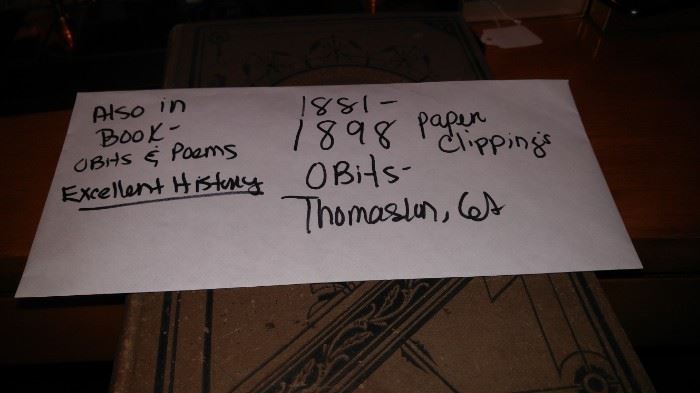 Also in
Book-
OBits & Poems
Excellent History
1881-
1898 Paper Clippings
OBits-
Thomaston, GA